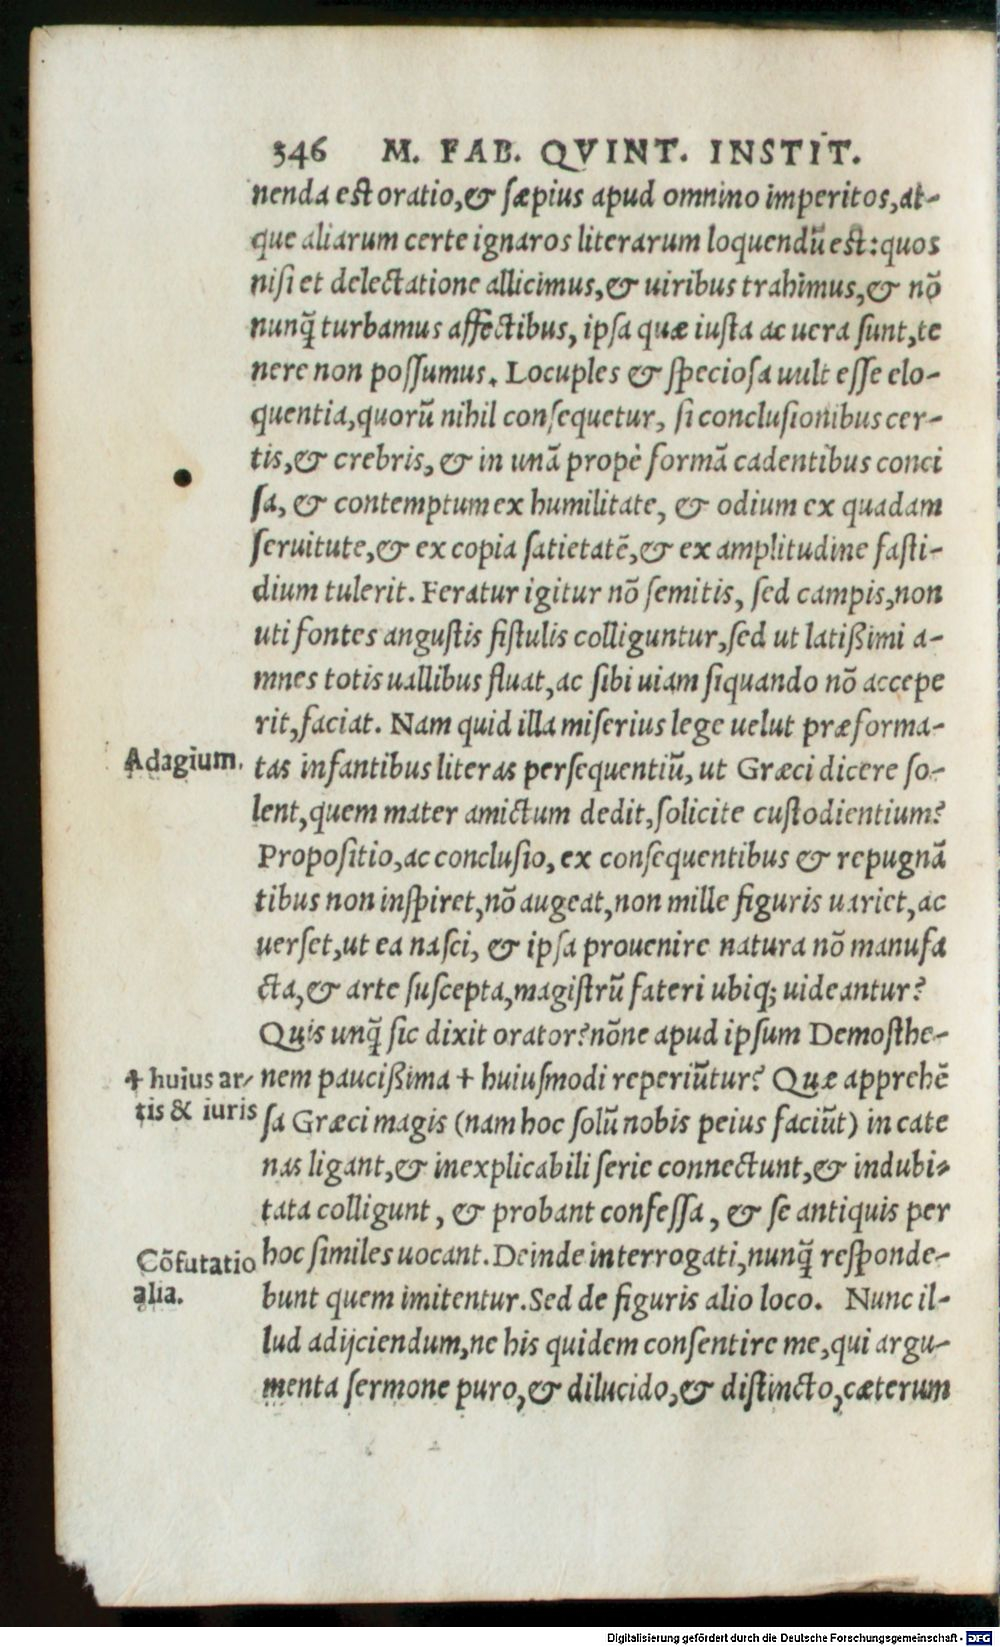 346 M. FAB. QVINT. INSTIT.
nenda est oratio,& sæpius apud omnino imperitos,at-
que aliarum certe ignaros literarum loquendū est:quos
nisi et delectatione allicimus,& uiribus trahimus,& nō
nunq̃ turbamus affectibus, ipsa quæ iusta ac uera sunt,te
nere non possumus. Locuples & speciosa uult esse elo-
quentia,quorū nihil consequetur, si conclusionibus cer-
tis,& crebris, & in unã propè formã cadentibus conci
sa, & contemptum ex humilitate, & odium ex quadam
seruitute,& ex copia satietatē,& ex amplitudine fasti-
dium tulerit. Feratur igitur nō semitis, sed campis,non
uti fontes angustis fistulis colliguntur,sed ut latißimi a-
mnes totis uallibus fluat,ac sibi uiam siquando nō accepe
rit,faciat. Nam quid illa miserius lege uelut præforma-
Adagium.
tas infantibus literas persequentiū, ut Græci dicere so-
lent,quem mater amictum dedit,solicite custodientium?
Propositio,ac conclusio, ex consequentibus & repugnã
tibus non inspiret,nō augeat,non mille figuris uariet,ac
uerset,ut ea nasci, & ipsa prouenire natura nō manufa
cta,& arte suscepta,magistrū fateri ubiq; uideantur?
Quis unq̃ sic dixit orator?nōne apud ipsum Demosthe-
+ huius ar-
tis & iuris
nem paucißima + huiusmodi reperiūtur? Quæ apprehē
sa Græci magis (nam hoc solū nobis peius faciūt) in cate
nas ligant,& inexplicabili serie connectunt,& indubi-
tata colligunt, & probant confessa, & se antiquis per
Cōfutatio
alia.
hoc similes uocant. Deinde interrogati,nunq̃ responde-
bunt quem imitentur.Sed de figuris alio loco. Nunc il-
lud adijciendum,ne his quidem consentire me,qui argu-
menta sermone puro,& dilucido,& distincto,cæterum
Digitalisierung gefördert durch die Deutsche Forschungsgemeinschaft - DFG